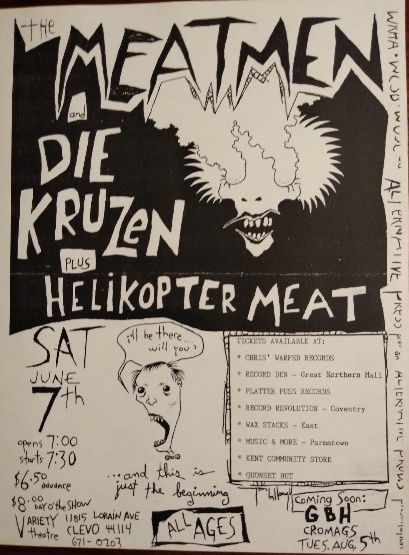 the
MEATMEN
and
DIE
KRUZEN
PLUS
HELIKOPTER MEAT
i'll be there...
will you?
SAT
JUNE
7th
opens 7:00
starts 7:30
$6.50 advance
$8.00 DAY O' THE SHOW
VARIETY theatre
11815 LORAIN AVE
CLEVO 44111
671-0203
...and this is
just the beginning
ALL AGES
TICKETS AVAILABLE AT:
* CHRIS' WARPED RECORDS
* RECORD DEN - Great Northern Mall
* PLATTER PUSS RECORDS
* RECORD REVOLUTION - Coventry
* WAX STACKS - East
* MUSIC & MORE - Parmatown
* KENT COMMUNITY STORE
* QUONSET HUT
Coming Soon:
GBH
CROMAGS
TUES. AUG. 5th
ALTERNATIVE PRESS for an ALTERNATIVE